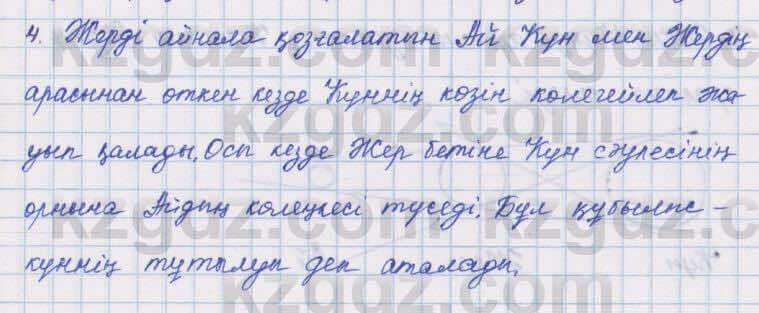 4. Жерді айнала қозғалатын Ай Күн мен Жердің
арасынан өткен кезде Күннің көзін көлегейлеп жа-
уып қалады. Осы кезде Жер бетіне Күн сәулесінің
орнына Айдың көлеңкесі түседі. Бұл құбылыс -
күннің тұтылуы деп аталады.
kzgdz.com